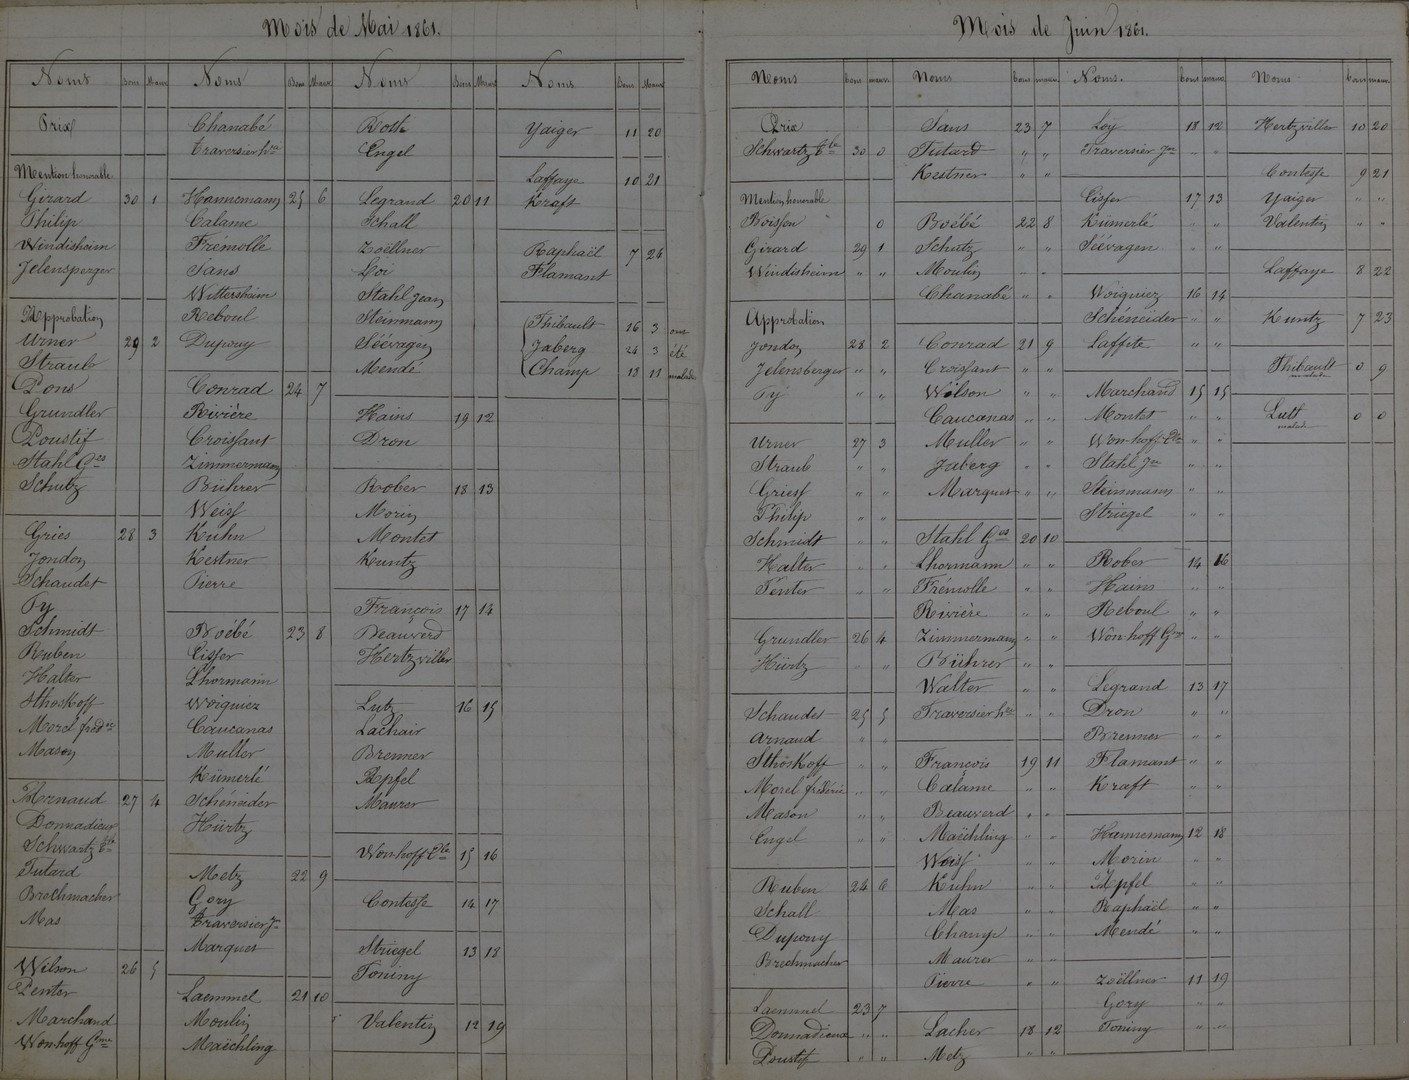 Mois de Mai 1861.
Noms Bons Mauv
Prix
Mention honorable
Girard 30 1
Philip
Windisheim
Jelensperger
Approbation
Urner 29 2
Straub
Pons
Grundler
Poustif
Stahl Ges
Schutz
Gries 28 3
Jondon
Schaudet
Py
Schmidt
Ruben
Halter
Sthoskoff
Morel fréd
Mason
Arnaud 27 4
Donnadieux
Schwartz
Futard
Brechmacher
Mas
Wilson 26 5
Penter
Marchand
Won-hoff Gme
Noms Bons Mauv
Chanabé
Traversier hri
Hannemann 25 6
Calame
Frémolle
Sans
Wittersheim
Reboul
Dupouy
Conrad 24 7
Rivière
Croissant
Zimmermann
Bührer
Weiss
Kuhn
Kestner
Pierre
Boébé 23 8
Cisser
Lhormann
Woiguiez
Caucanas
Muller
Kümerlé
Schéneider
Hürtz
Metz 22 9
Gory
Traversier Jn
Marques
Laemmel 21 10
Moulin
Maëchling
Noms Bons Mauv
Roth
Engel
Legrand 20 11
Schall
Zoëllner
Loi
Stahl Jean
Steinmann
Séévagen
Mendé
Hains 19 12
Dron
Rober 18 13
Morin
Montet
Kuntz
François 17 14
Beauverd
Hertzviller
Lutz 16 15
Lachair
Brenner
Apfel
Maurer
Won-hoff 15 16
Contesse 14 17
Striegel 13 18
Toniny
Valentin 12 19
Noms Bons Mauv
Yaiger 11 20
Laffaye 10 21
Kraft
Raphaël 7 24
Flamant
Thibault 16 3 ont
Jaberg 24 3 été
Champ 18 11 malades
Mois de Juin 1861.
Noms bons mauv.
Prix
Schwartz 30 0
Mention honorable
Boissen 0
Girard 29 1
Windisheim " "
Approbation
Jondon 28 2
Jelensberger " "
Py " "
Urner 27 3
Straub " "
Griess " "
Philip " "
Schmidt " "
Halter " "
Penter " "
Grundler 26 4
Hürtz " "
Schaudet 25 5
Arnaud " "
Sthoskoff " "
Morel fréderic " "
Mason " "
Engel " "
Ruben 24 6
Schall
Dupony
Brechmacher
Laemmel 23 7
Donnadieux " "
Poustif " "
Noms bons mauv.
Sans 23 7
Futard " "
Kestner " "
Boébé 22 8
Schutz " "
Moulin " "
Chanabé " "
Conrad 21 9
Croissant " "
Wilson " "
Caucanas " "
Muller " "
Jaberg " "
Marques " "
Stahl Ges 20 10
Lhormann " "
Frémolle " "
Rivière " "
Zimmermann " "
Bührer " "
Walter " "
Traversier hri " "
François 19 11
Calame " "
Beauverd " "
Maëchling " "
Weiss " "
Kuhn " "
Mas " "
Champ " "
Maurer " "
Pierre " "
Lacher 18 12
Metz " "
Noms. bons mauv.
Loy 18 12
Traversier Jn " "
Cisser 17 13
Kümerlé " "
Séévagen " "
Woiguiez 16 14
Schéneider " "
Laffite " "
Marchand 15 15
Montet " "
Won-hoff " "
Stahl Jn " "
Steinmann " "
Striegel " "
Rober 14 16
Hains " "
Reboul " "
Won hoff " "
Legrand 13 17
Dron " "
Brenner " "
Flamant " "
Kraft " "
Hannemann 12 18
Morin " "
Apfel " "
Raphaël " "
Mendé " "
Zoëllner 11 19
Gory " "
Toniny " "
Noms bons mauv.
Hertzviller 10 20
Contesse 9 21
Yaiger " "
Valentin " "
Laffaye 8 22
Kuntz 7 23
Thibault 0 9
malade
Lutt 0 0
malade